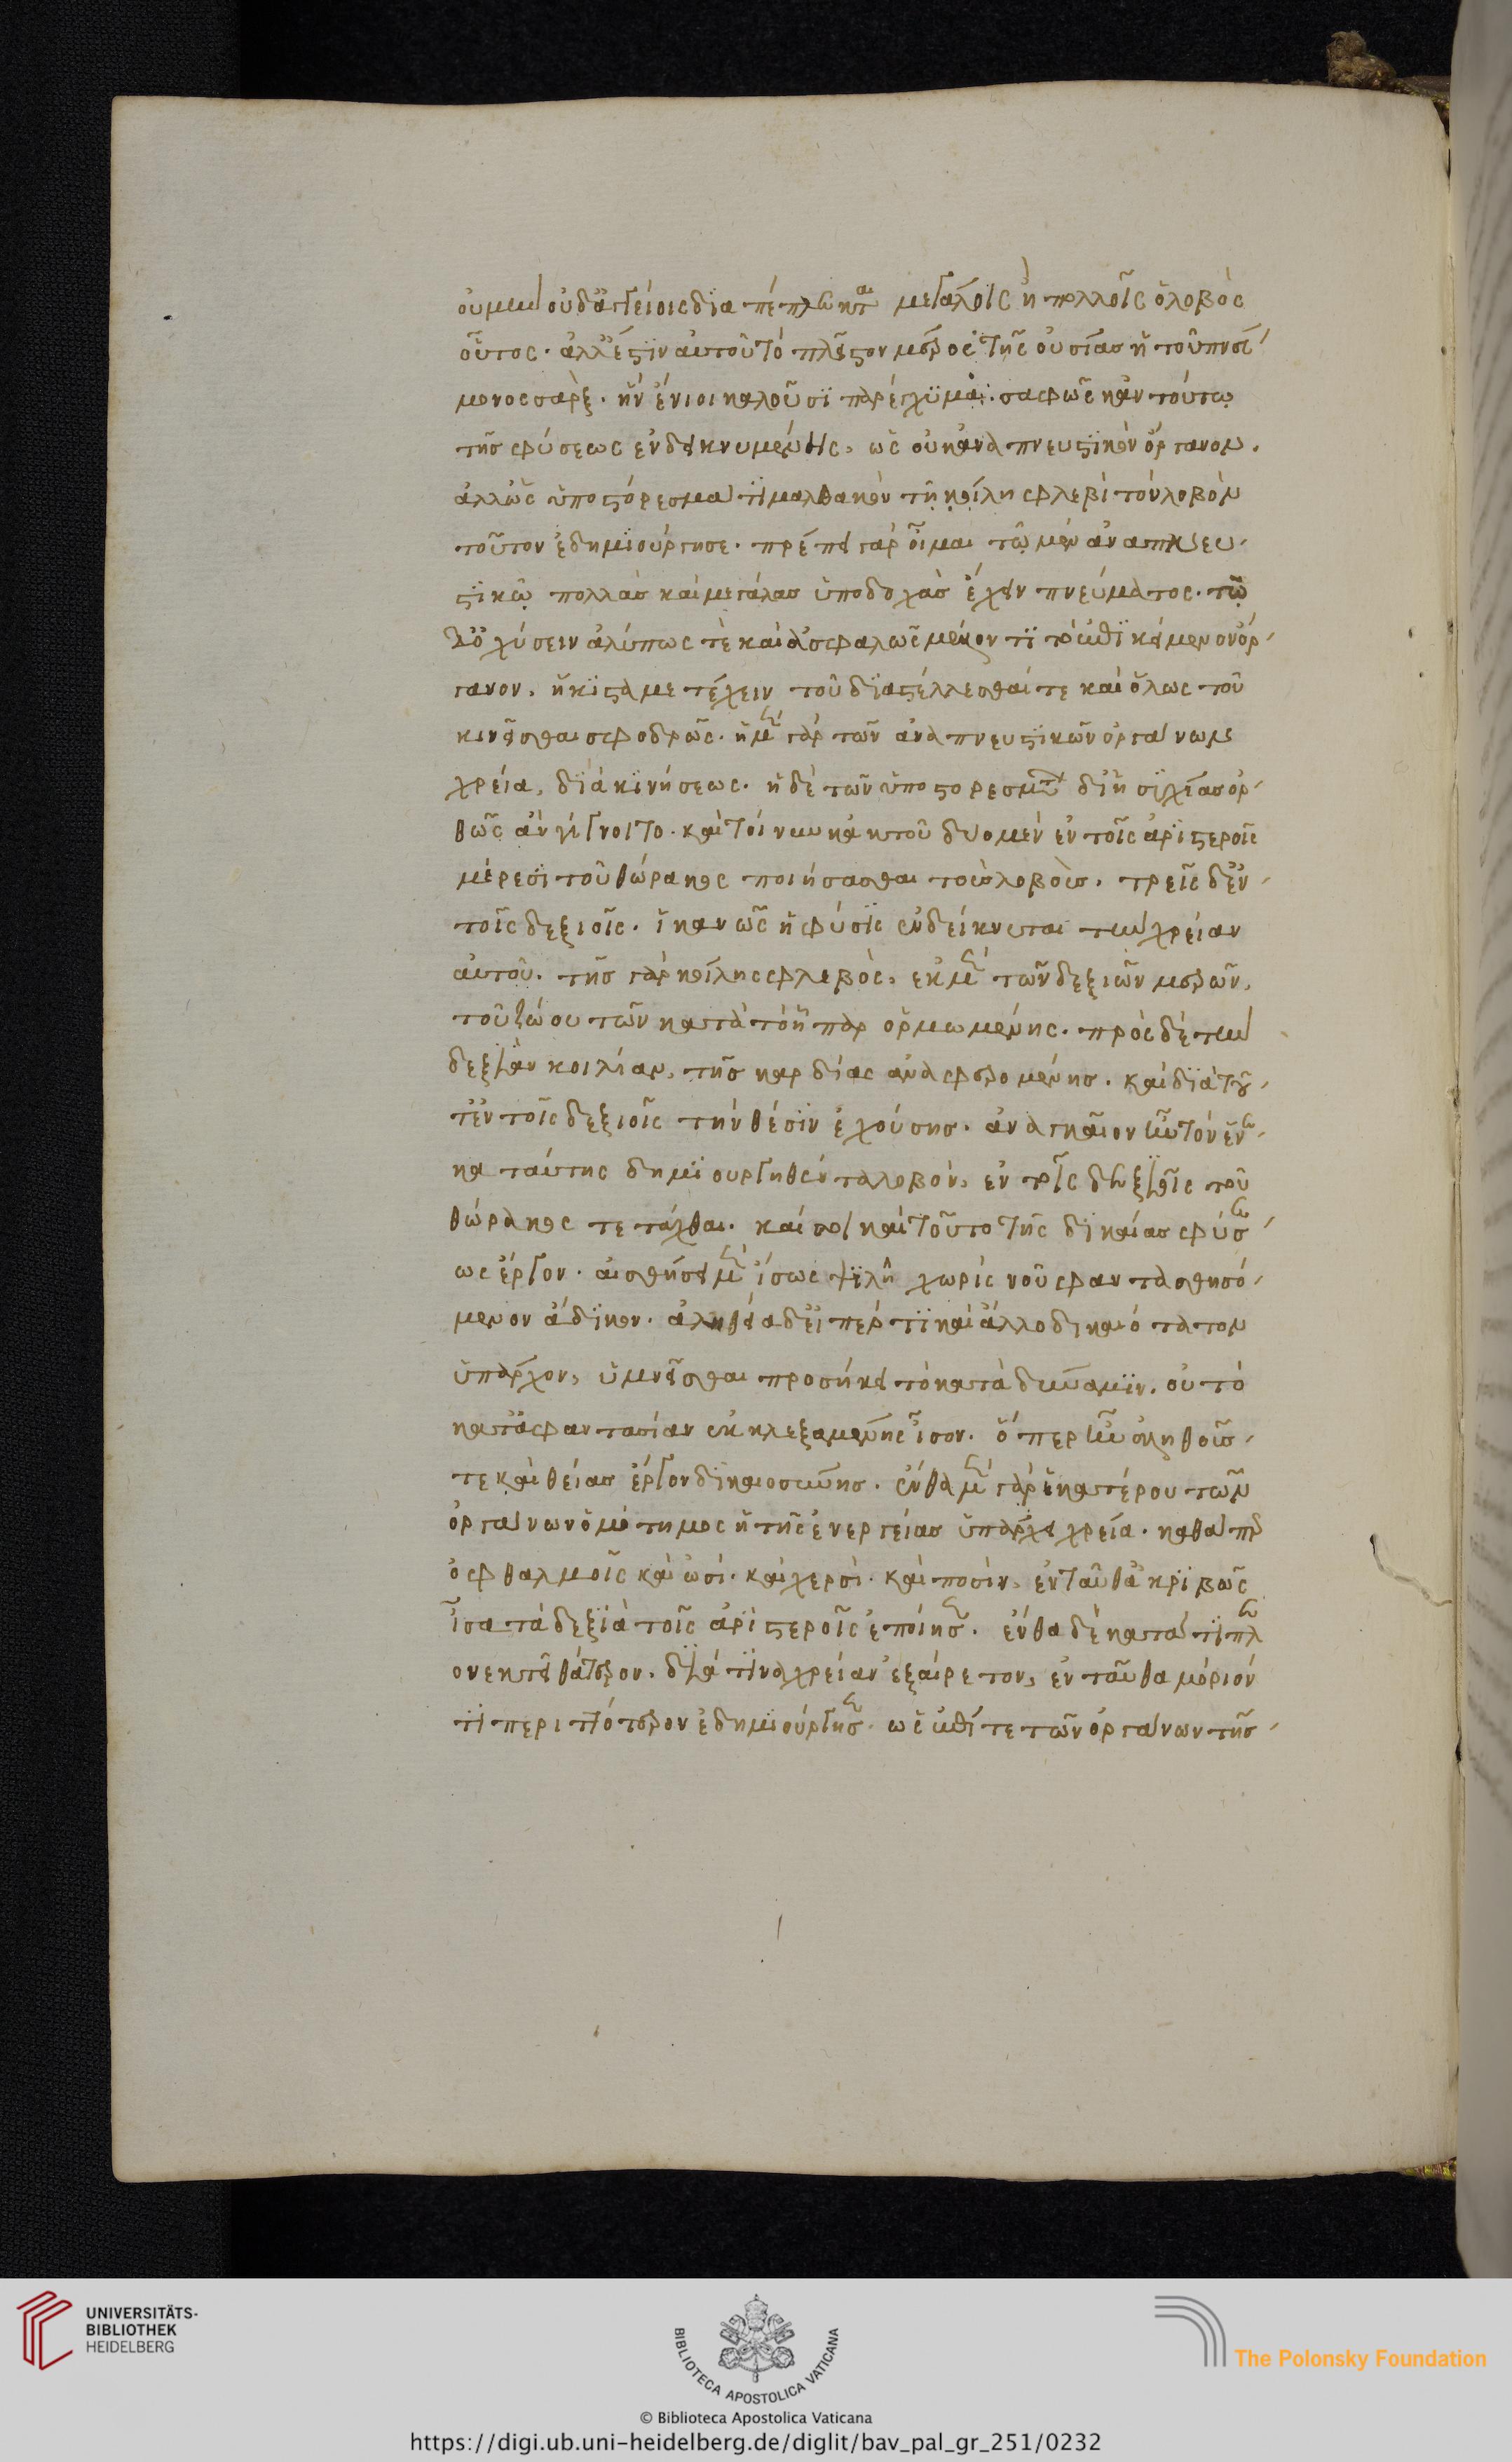 οὐ μὴν οὐδ' ἀγγείοις διαπέπλεκται μεγάλοις ἢ πολλοῖς ὁ λοβὸς
οὗτος. ἀλλ' ἔστιν αὐτοῦ τὸ πλεῖστον μέρος τῆς οὐσίας ἡ τοῦ πνεύ-
μονος σὰρξ. ἣν ἔνιοι καλοῦσι παρέγχυμα. σαφῶς κἀν τούτῳ
τῆς φύσεως ἐνδεικνυμένης, ὡς οὐκ ἀναπνευστικὸν ὄργανον.
ἀλλ' ὡς ὑποστόρεσμά τι μαλθακὸν τῇ κοίλῃ φλεβὶ τὸν λοβὸν
τοῦτον ἐδημιούργησε. πρέπει γὰρ οἶμαι τῷ μὲν ἀναπνευ-
στικῷ πολλὰς καὶ μεγάλας ὑποδοχὰς ἔχειν πνεύματος. τῷ
δ' ὀχήσειν ἀλύπως τε καὶ ἀσφαλῶς μέλλοντι τὸ ἐπικείμενον ὄρ-
γανον, ἥκιστα μετέχειν τοῦ διαστέλλεσθαί τε καὶ ὅλως τοῦ
κινεῖσθαι σφοδρῶς. ἡ μὲν γὰρ τῶν ἀναπνευστικῶν ὀργάνων
χρεία, διὰ κινήσεως. ἡ δὲ τῶν ὑποστορεσμάτων δι' ἡσυχίας ὀρ-
θῶς ἂν γίγνοιτο. καὶ τοίνυν κἀκ τοῦ δύο μὲν ἐν τοῖς ἀριστεροῖς
μέρεσι τοῦ θώρακος ποιήσασθαι τοὺς λοβοὺς, τρεῖς δ' ἐν
τοῖς δεξιοῖς. ἱκανῶς ἡ φύσις ἐνδείκνυται τὴν χρείαν
αὐτοῦ. τῆς γὰρ κοίλης φλεβὸς, ἐκ μὲν τῶν δεξιῶν μερῶν,
τοῦ ζώου τῶν κατὰ τὸ ἧπαρ ὁρμωμένης. πρὸς δὲ τὴν
δεξιὰν κοιλίαν, τῆς καρδίας ἀναφερομένης. καὶ διὰ τοῦ-
τ' ἐν τοῖς δεξιοῖς τὴν θέσιν ἐχούσης. ἀναγκαῖον ἦν τὸν ἕνε-
κα ταύτης δημιουργηθέντα λοβὸν, ἐν τοῖς δεξιοῖς τοῦ
θώρακος τετάχθαι. καί σοι καὶ τοῦτο τῆς δικαίας φύσε-
ως ἔργον. αἰσθήσει μὲν ἴσως ψιλῇ χωρὶς νοῦ φαντασθησό-
μενον ἄδικον. ἀληθείᾳ δ' εἴπερ τι καὶ ἄλλο δικαιότατον
ὑπάρχον, ὑμνεῖσθαι προσήκει τὸ κατὰ δύναμιν, οὐ τὸ
κατὰ φαντασίαν ἐκλεξαμένης ἴσον. ὅπερ ἦν ἀληθοῦς
τε καὶ θείας ἔργον δικαιοσύνης. ἔνθα μὲν γὰρ ἑκατέρου τῶν
ὀργάνων ὁμότιμος ἡ τῆς ἐνεργείας ὑπάρχει χρεία. καθάπερ
ὀφθαλμοῖς καὶ ὠσὶ. καὶ χερσὶ. καὶ ποσὶν, ἐνταῦθ' ἀκριβῶς
ἴσα τὰ δεξιὰ τοῖς ἀριστεροῖς ἐποίησεν. ἔνθα δὲ κατά τι πλε-
ονεκτεῖ θάτερον. διά τινα χρείαν ἐξαίρετον, ἐνταῦθα μόριόν
τι περιττότερον ἐδημιούργησεν. ὡς ἐπί τε τῶν ὀργάνων τῆς
UNIVERSITÄTS-
BIBLIOTHEK
HEIDELBERG
BIBLIOTECA APOSTOLICA VATICANA
The Polonsky Foundation
© Biblioteca Apostolica Vaticana
https://digi.ub.uni-heidelberg.de/diglit/bav_pal_gr_251/0232